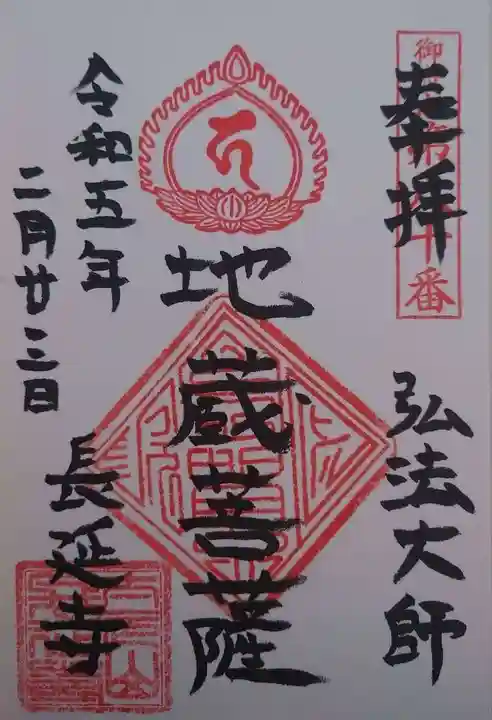 奉拝
弘法大師
地蔵菩薩
令和五年
二月廿三日
長延寺